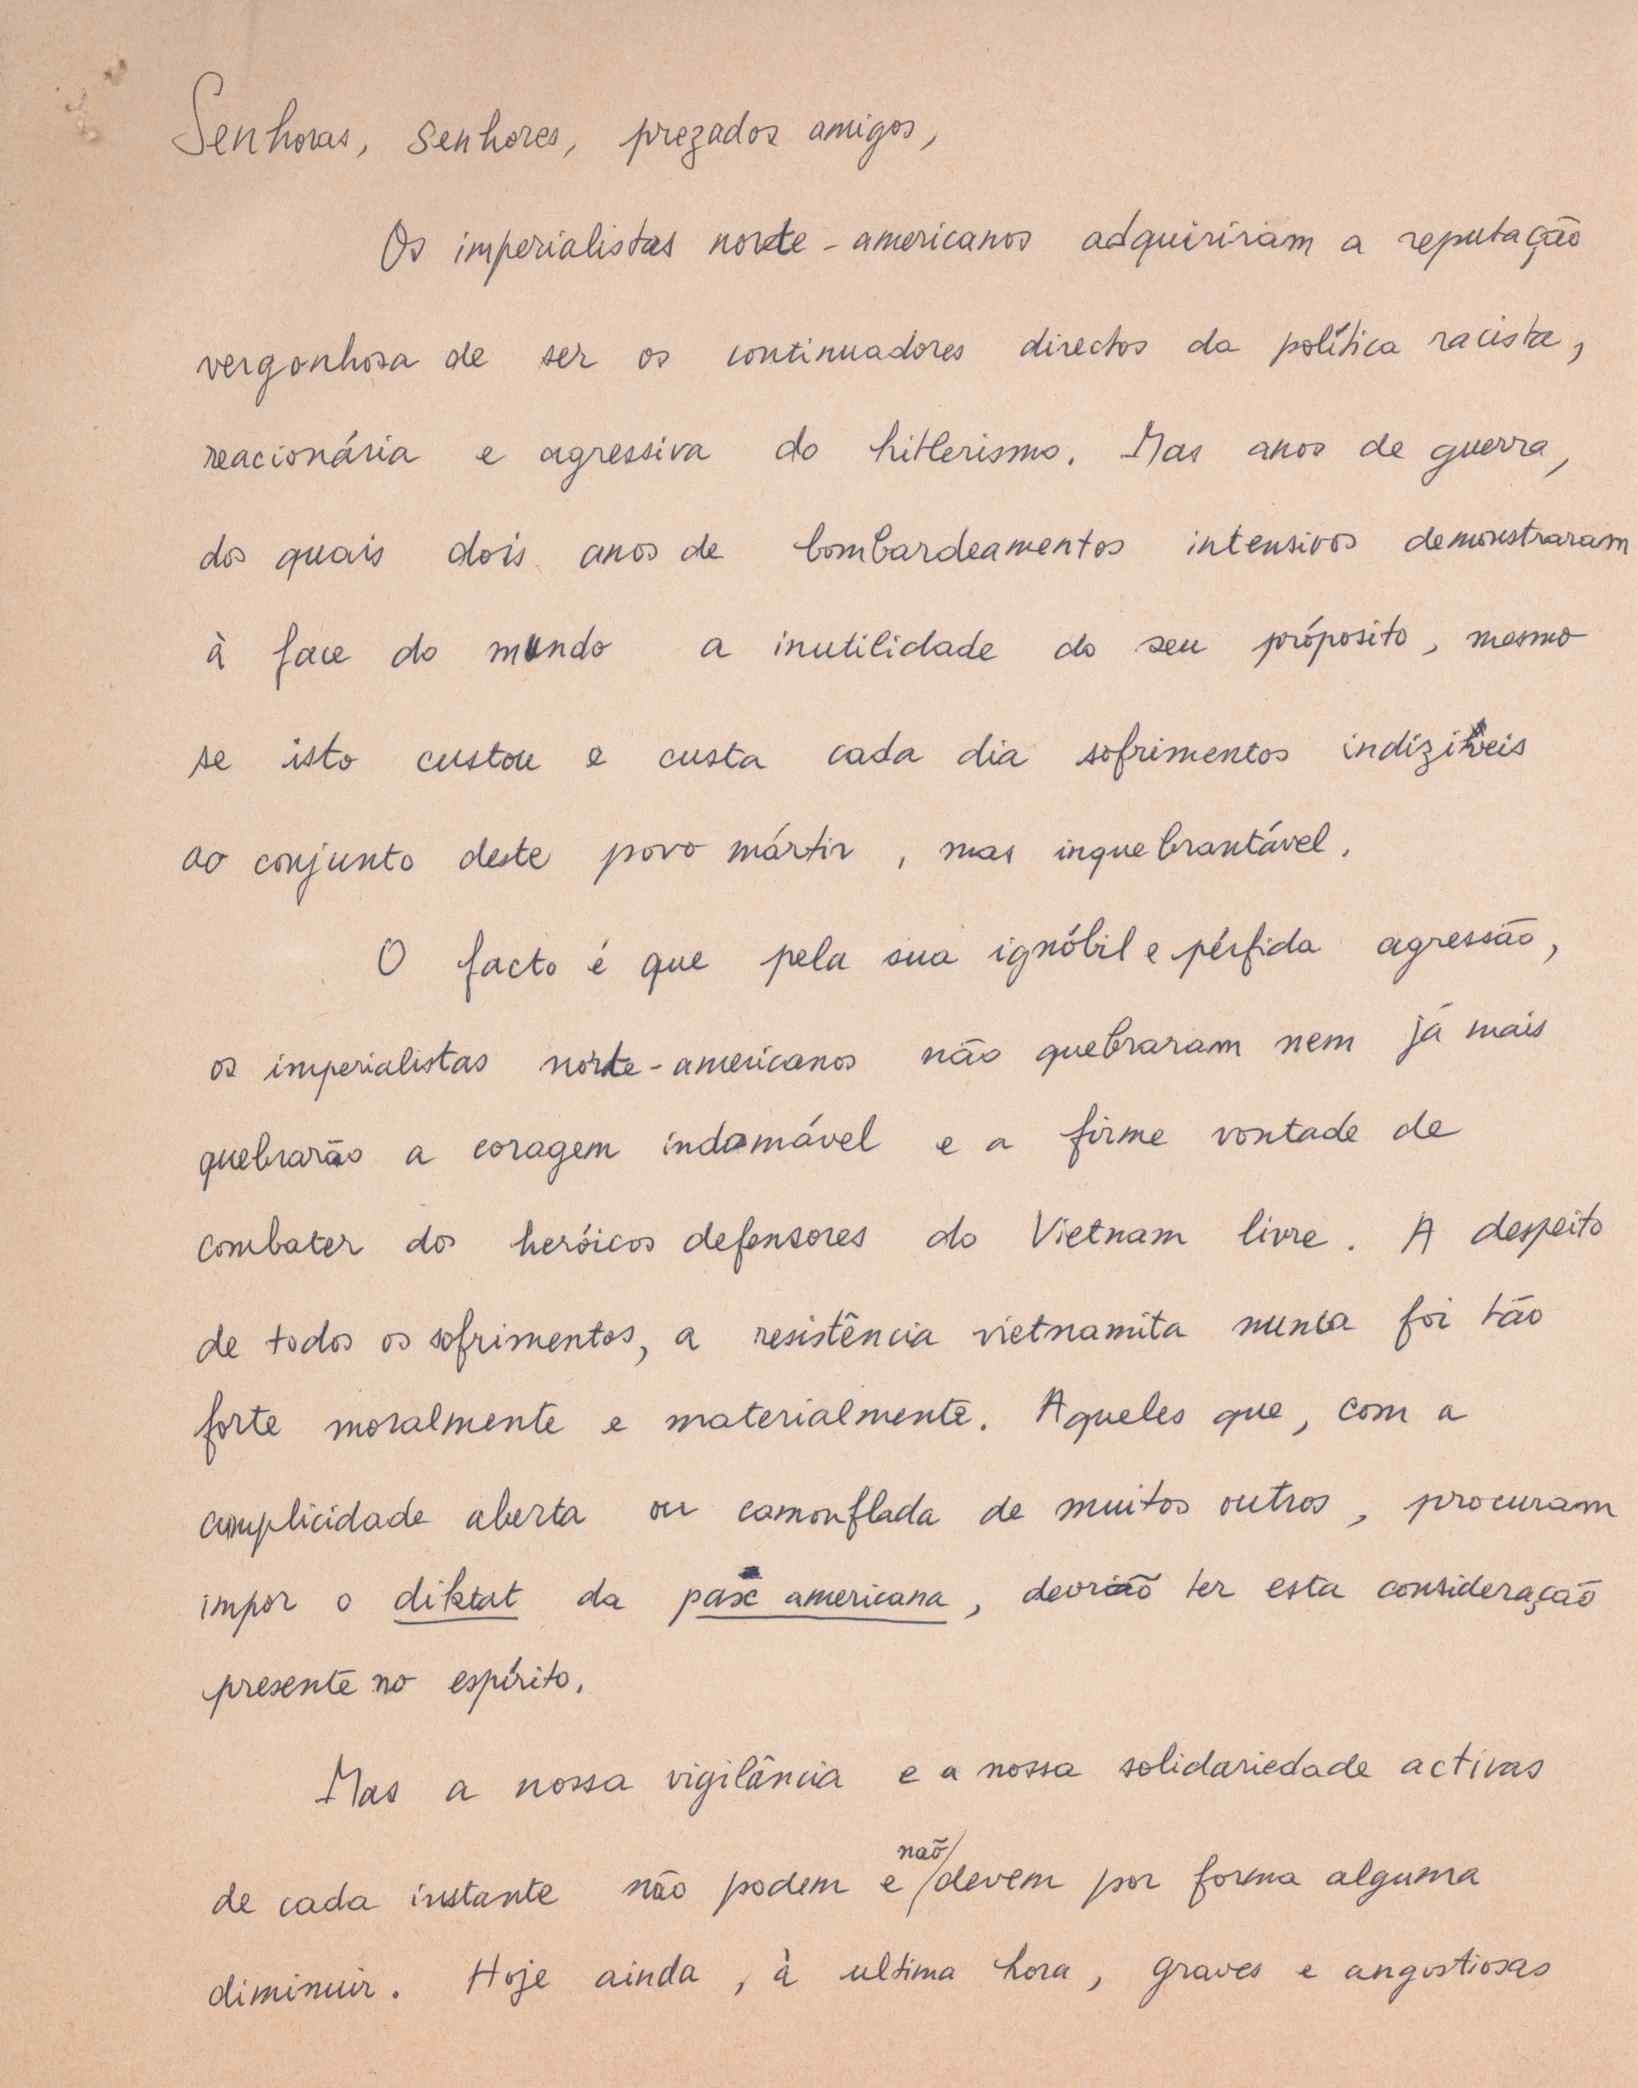 Senhoras, senhores, prezados amigos,
Os imperialistas norte-americanos adquiriram a reputação
vergonhosa de ser os continuadores directos da política racista,
reacionária e agressiva do hitlerismo. Mas anos de guerra,
dos quais dois anos de bombardeamentos intensivos demonstraram
à face do mundo a inutilidade do seu próposito, mesmo
se isto custou e custa cada dia sofrimentos indizíveis
ao conjunto deste povo mártir, mas inquebrantável.
O facto é que pela sua ignóbil e pérfida agressão,
os imperialistas norte-americanos não quebraram nem já mais
quebrarão a coragem indomável e a firme vontade de
combater dos heróicos defensores do Vietnam livre. A despeito
de todos os sofrimentos, a resistência vietnamita nunca foi tão
forte moralmente e materialmente. Aqueles que, com a
cumplicidade aberta ou camouflada de muitos outros, procuram
impor o diktat da pax americana, devrião ter esta consideração
presente no espírito.
Mas a nossa vigilância e a nossa solidariedade activas
de cada instante não podem e não devem por forma alguma
diminuir. Hoje ainda, à ultima hora, graves e angustiosas